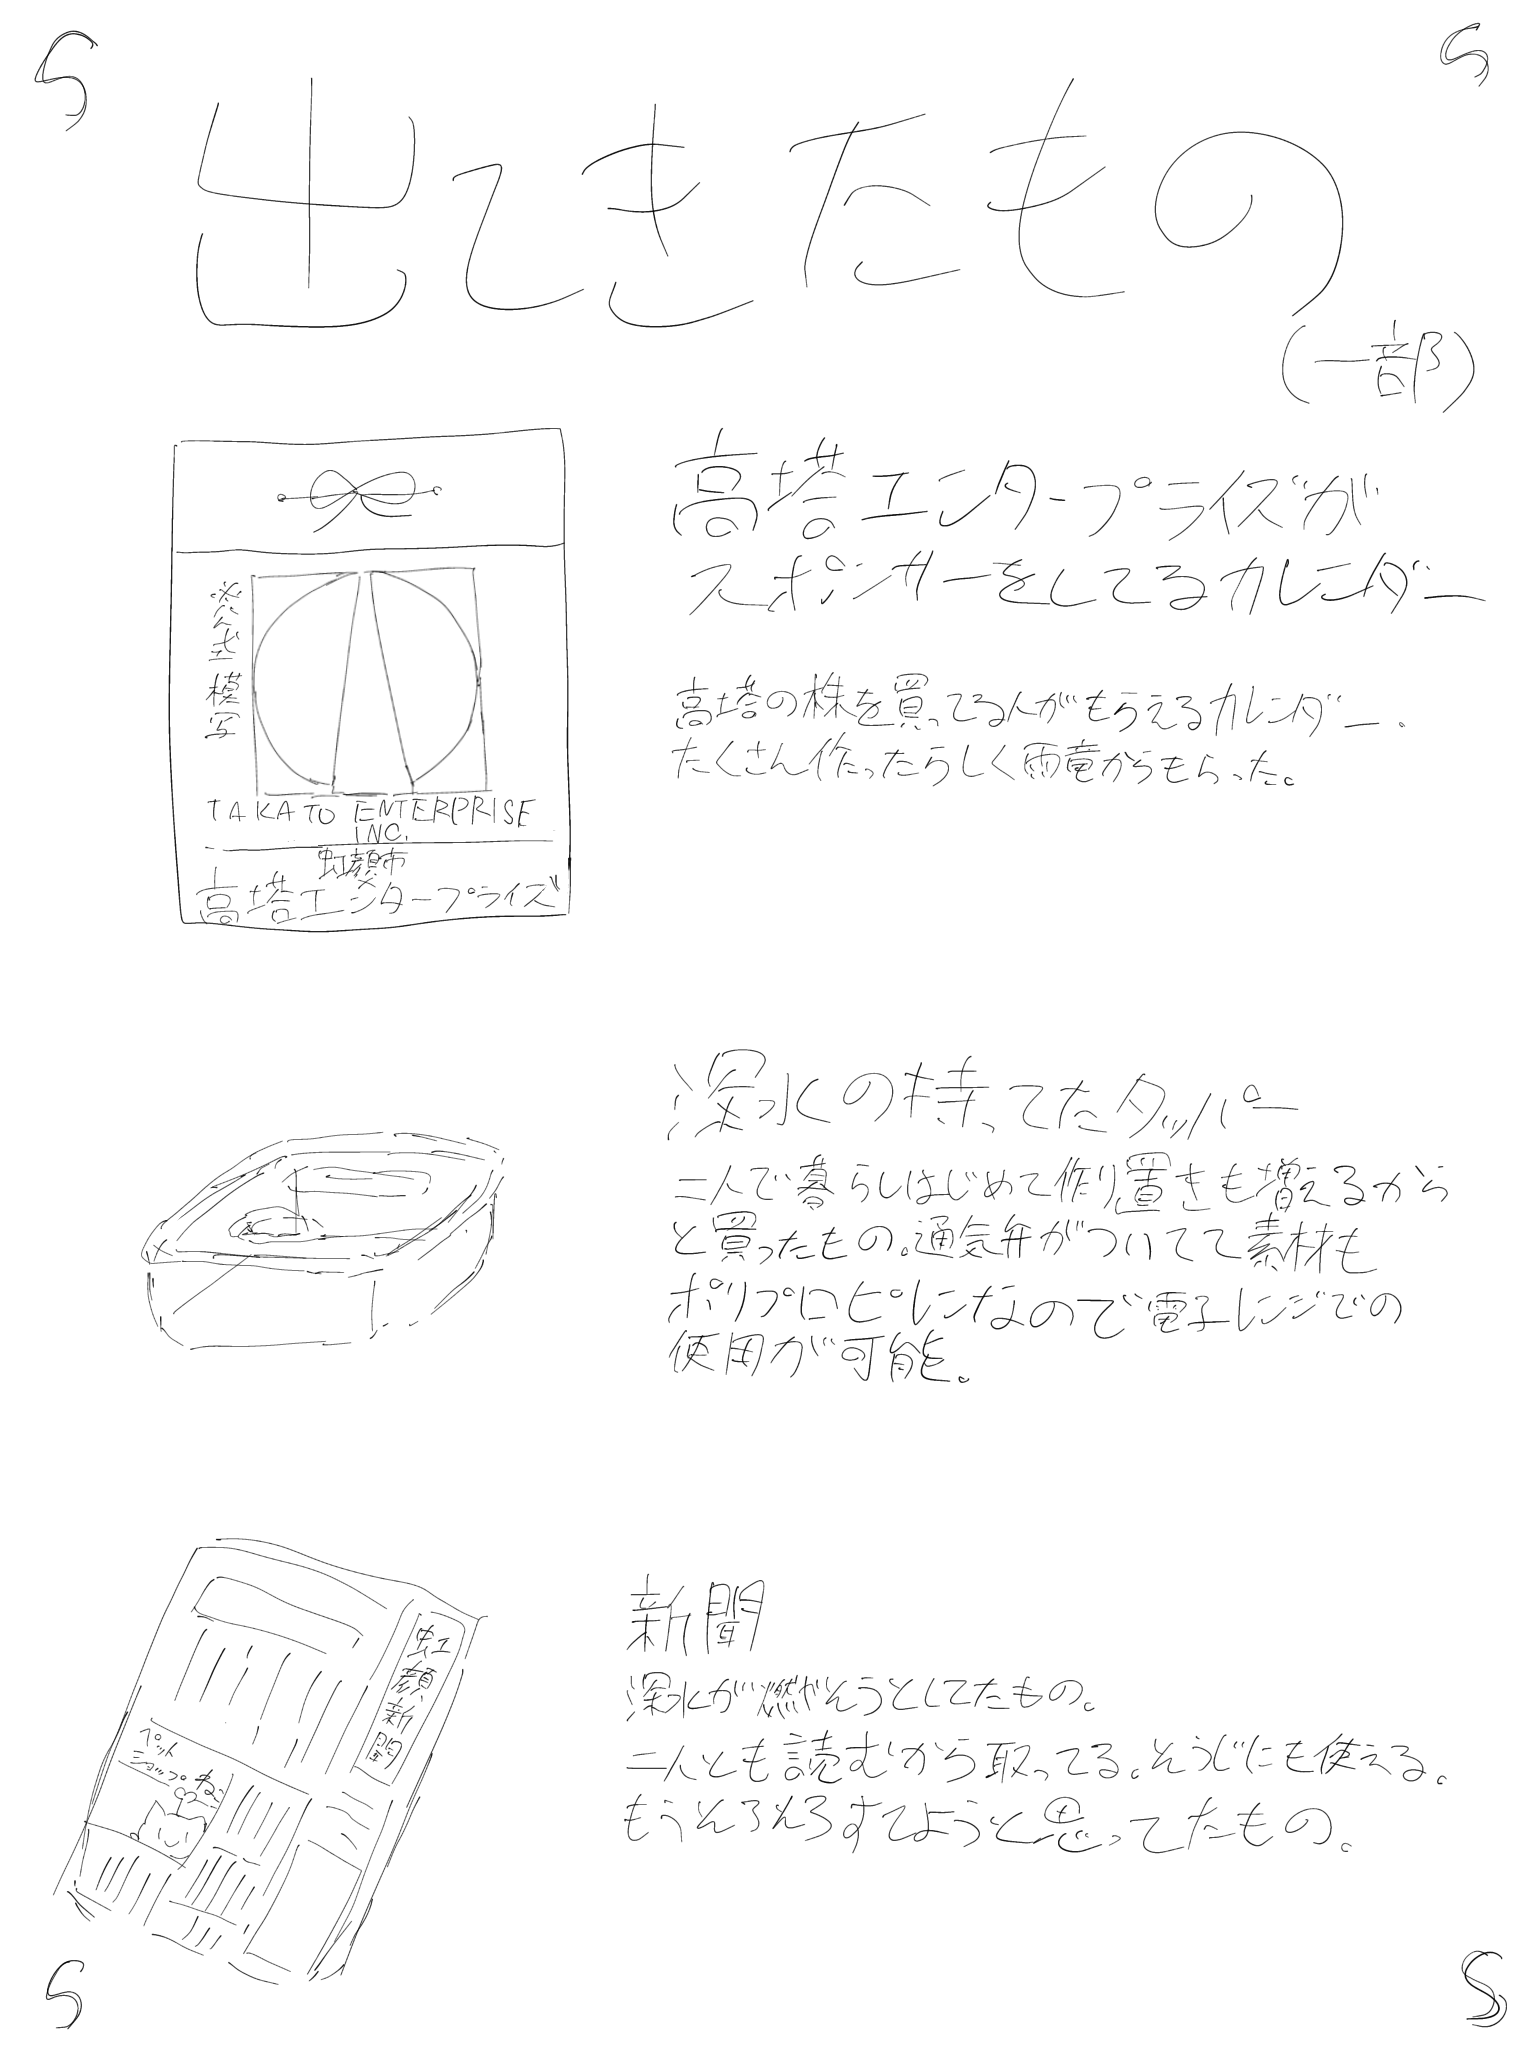 S
S
出てきたもの
(一部)
※公式模写
TAKATO ENTERPRISE
INC.
虹顔市
高塔エンタープライズ
高塔エンタープライズが
スポンサーをしてるカレンダー
高塔の株を買ってる人がもらえるカレンダー.
たくさん作ったらしく雨竜からもらった。
深水の持ってたタッパー
二人で暮らしはじめて作り置きも増えるから
と買ったもの。通気弁がついてて素材も
ポリプロピレンなので電子レンジでの
使用が可能。
虹顔新聞
ペット
ショップ
新聞
深水が燃やそうとしてたもの。
二人とも読むから取ってる。そうじにも使える。
もうそろそろすてようと思ってたもの。
S
S